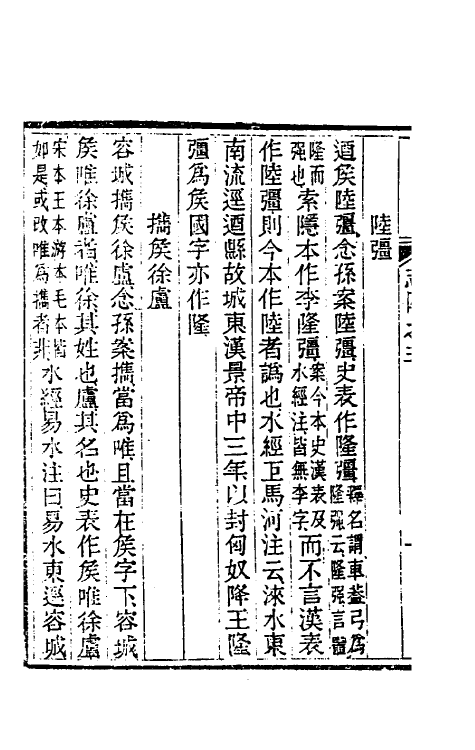 陸彊
遒矦陸彊念孫案陸彊史表作隆彊釋名謂車蓋弓爲隆彊云隆强言體
隆而强也索隱本作李隆彊案今本史漢表及水經注皆無李字而不言漢表
作陸彊則今本作陸者譌也水經巨馬河注云淶水東
南流逕遒縣故城東漢景帝中三年以封匈奴降王隆
彊爲矦國字亦作隆
攜矦徐盧
容城攜矦徐盧念孫案攜當爲唯且當在矦字下容城
矦唯徐盧者唯徐其姓也盧其名也史表作矦唯徐盧
宋本王本游本毛本皆如是或改唯爲攜者非水經易水注曰易水東逕容城